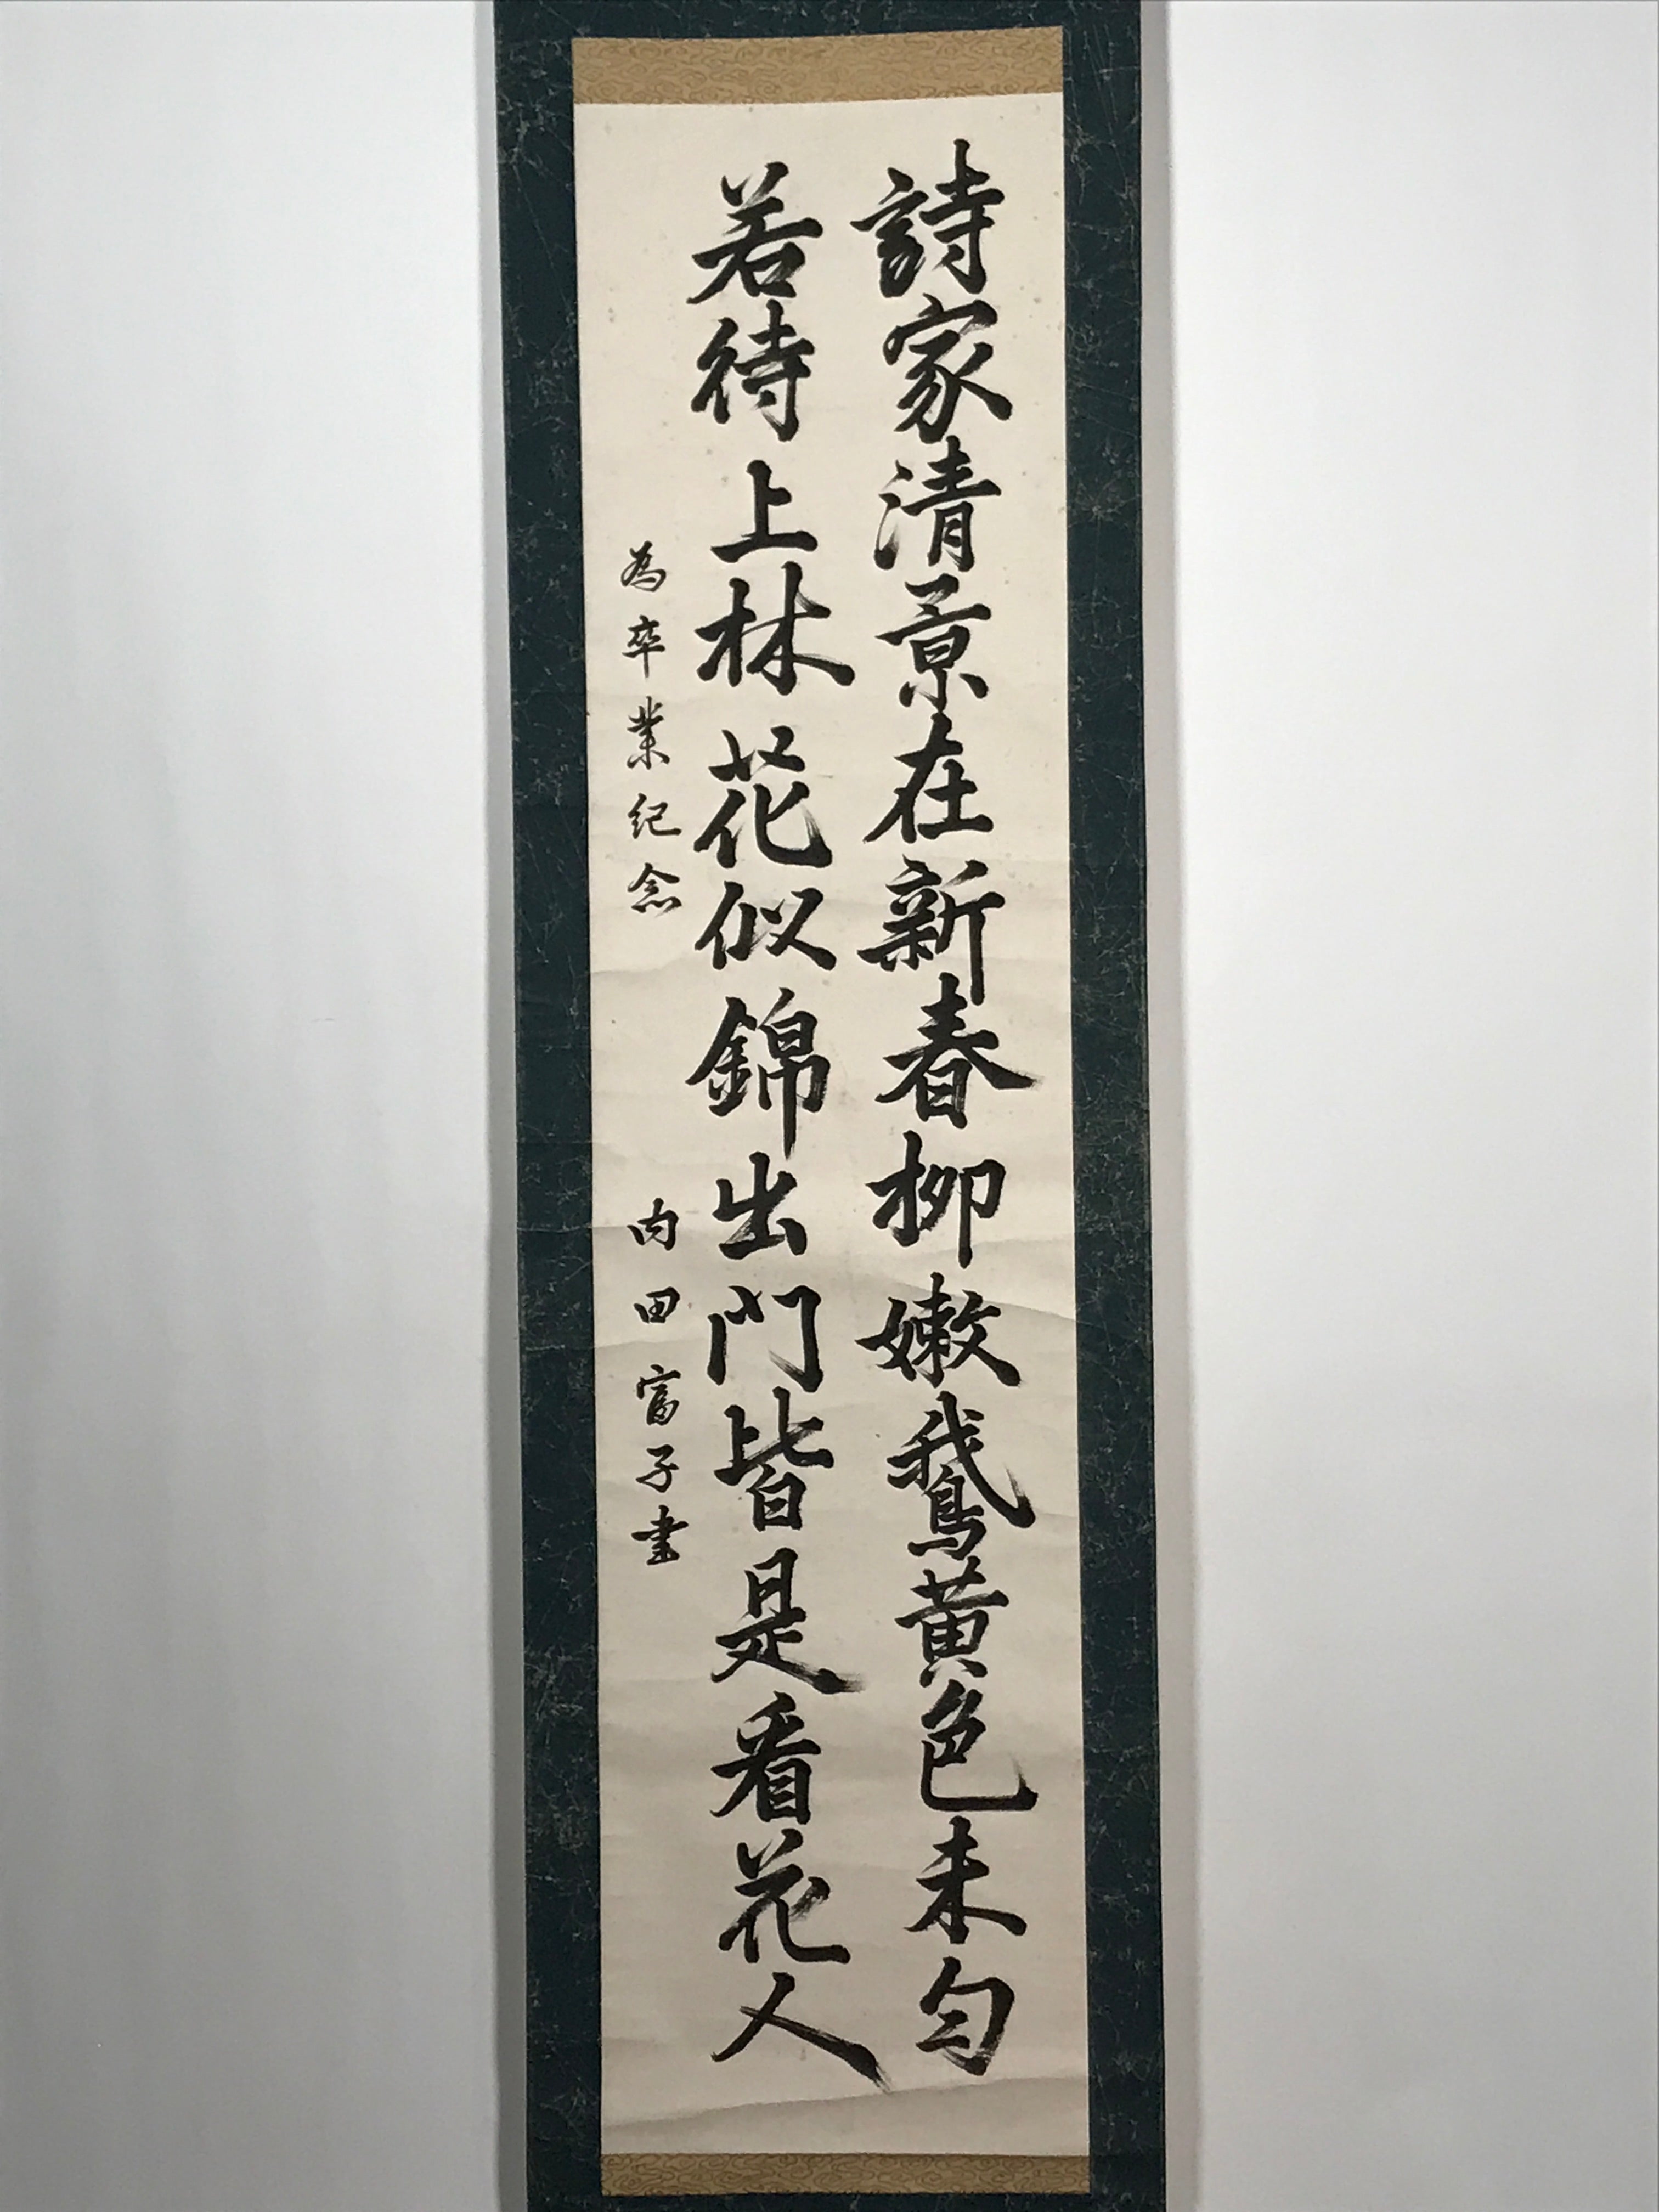 詩家清景在新春柳嫩鵝黄色未匀
若待上林花似錦出門皆是看花人
為卒業紀念
内田富子書